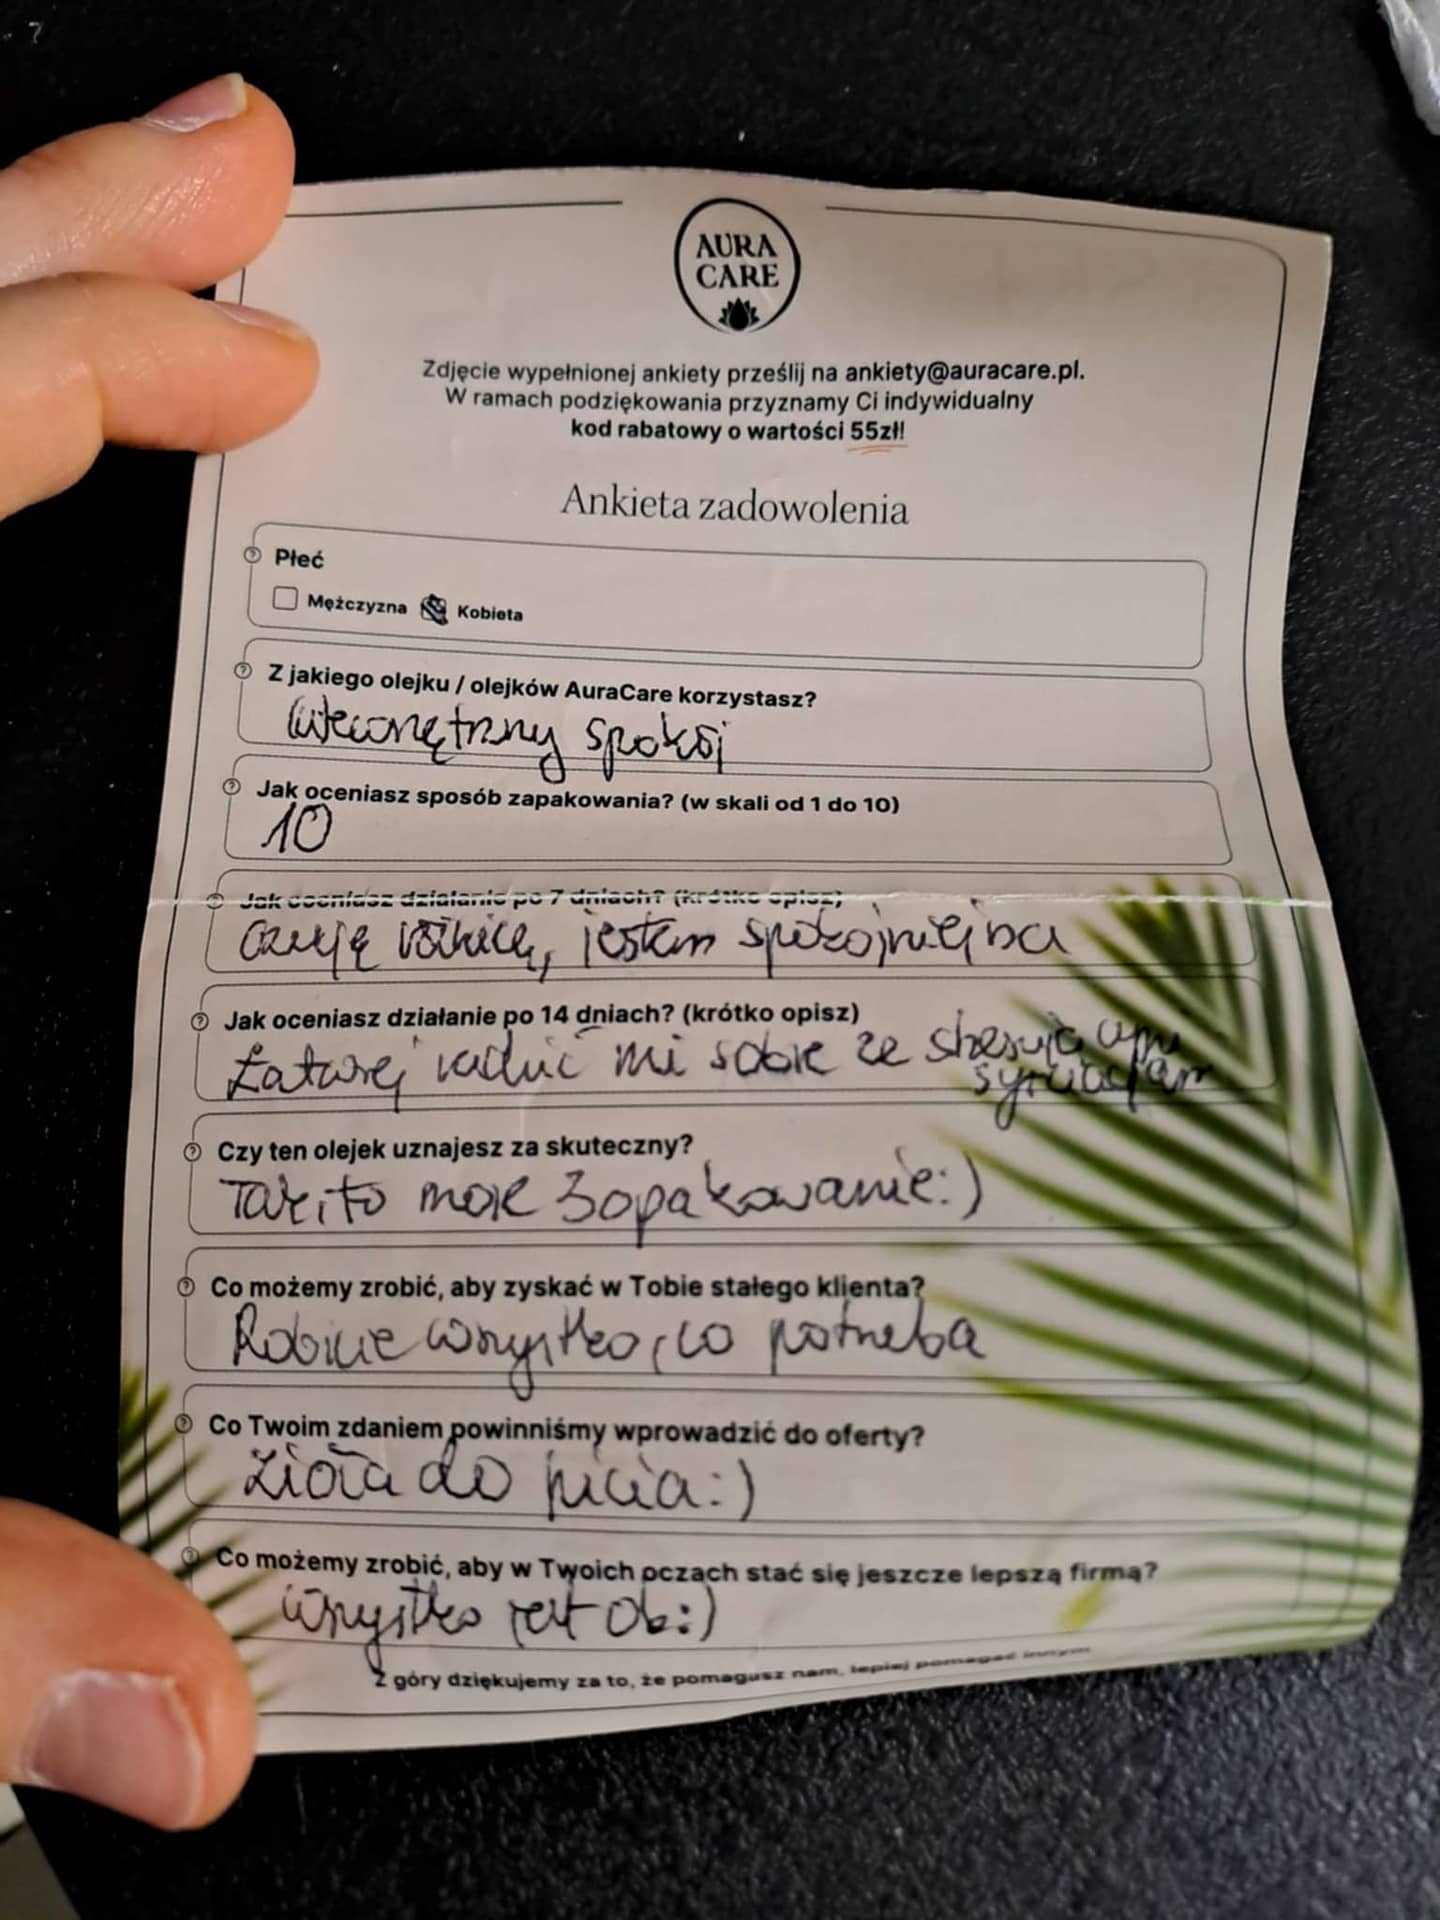 AURA
CARE
Zdjęcie wypełnionej ankiety prześlij na ankiety@auracare.pl.
W ramach podziękowania przyznamy Ci indywidualny
kod rabatowy o wartości 55zł!
Ankieta zadowolenia
Płeć
Mężczyzna Kobieta
Z jakiego olejku / olejków AuraCare korzystasz?
Wewnętrzny spokój
Jak oceniasz sposób zapakowania? (w skali od 1 do 10)
10
Jak oceniasz działanie po 7 dniach? (krótko opisz)
Czuję różnicę, jestem spokojniejsza
Jak oceniasz działanie po 14 dniach? (krótko opisz)
Łatwiej radzić mi sobie ze stresującymi
sytuacjam
Czy ten olejek uznajesz za skuteczny?
Tak, to moje 3 opakowanie:)
Co możemy zrobić, aby zyskać w Tobie stałego klienta?
Robicie wszystko, co potrzeba
Co Twoim zdaniem powinniśmy wprowadzić do oferty?
Zioła do picia:)
Co możemy zrobić, aby w Twoich oczach stać się jeszcze lepszą firmą?
Wszystko jest ok:)
Z góry dziękujemy za to, że pomagasz nam, lepiej pomagać innym